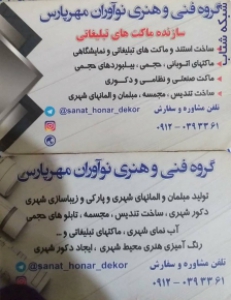 گروه فنی و هنری نوآوران مهرپارس
سازنده ماکت های تبلیغاتی
ساخت استند و ماکت های تبلیغاتی و نمایشگاهی
ماکتهای اتوبانی ، حجمی ، بیلبوردهای حجمی
ماکت صنعتی و نظامی و دکوری
ساخت تندیس ، مجسمه ، مبلمان و المانهای شهری
@sanat_honar_dekor
تلفن مشاوره و سفارش
۰۹۱۲ - ۰۳۹ ۳۳ ۶۱
شبکه شتاب
گروه فنی و هنری نوآوران مهرپارس
تولید مبلمان و المانهای شهری و پارکی و زیباسازی شهری
دکور شهری ، ساخت تندیس ، مجسمه ، تابلو های حجمی
آب نمای شهری ، ماکتهای تبلیغاتی و ...
رنگ آمیزی هنری محیط شهری ، ایجاد دکور شهری
@sanat_honar_dekor
تلفن مشاوره و سفارش
۰۹۱۲ - ۰۳۹ ۳۳ ۶۱